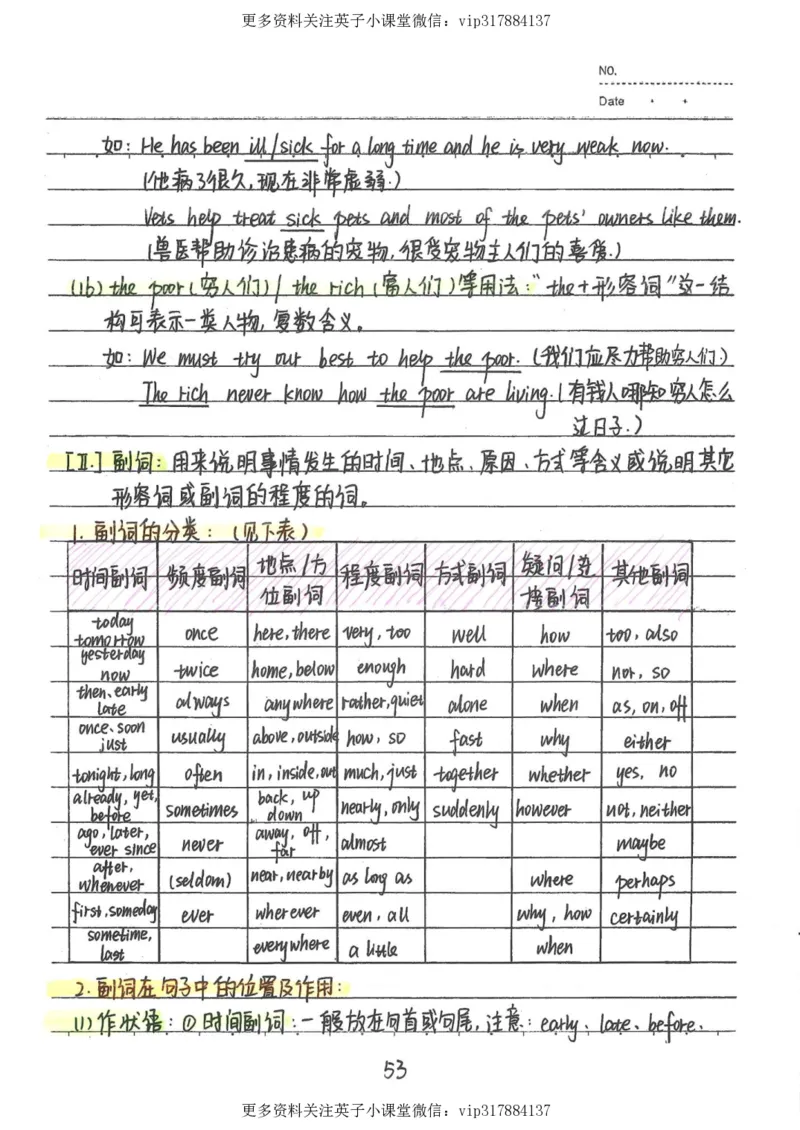 更多资料关注英子小课堂微信：vip317884137
NO.
Date
如: He has been ill/sick for a long time and he is very weak now.
(他病了很久,现在非常虚弱.)
Vets help treat sick pets and most of the pets' owners like them.
(兽医帮助诊治患病的宠物,很受宠物主人们的喜爱.)
(16) the poor(穷人们) / the rich (富人们)等用法:"the+形容词"这一结
构可表示一类人物,复数含义。
如: We must try our best to help the poor. (我们应尽力帮助穷人们.)
The rich never know how the poor are living.(有钱人哪知穷人怎么
过日子.)
[Ⅱ.] 副词: 用来说明事情发生的时间、地点、原因、方式等含义或说明其它
形容词或副词的程度的词。
1. 副词的分类: (见下表)
时间副词 频度副词 地点/方位副词 程度副词 方式副词 疑问/连接副词 其他副词
today tomorrow once here, there very, too well how too, also
yesterday now twice home, below enough hard where nor, so
then, early late always anywhere rather, quiet alone when as, on, off
once, soon just usually above, outside how, so fast why either
tonight, long often in, inside, out much, just together whether yes, no
already, yet, before sometimes back, up down nearly, only suddenly however not, neither
ago, later, ever since never away, off, far almost maybe
after, whenever (seldom) near, nearby as long as where perhaps
first, someday ever wherever even, all why, how certainly
sometime, last everywhere a little when
2. 副词在句子中的位置及作用:
(1) 作状语: ① 时间副词: 一般放在句首或句尾, 注意: early、late、before、
53
更多资料关注英子小课堂微信：vip317884137